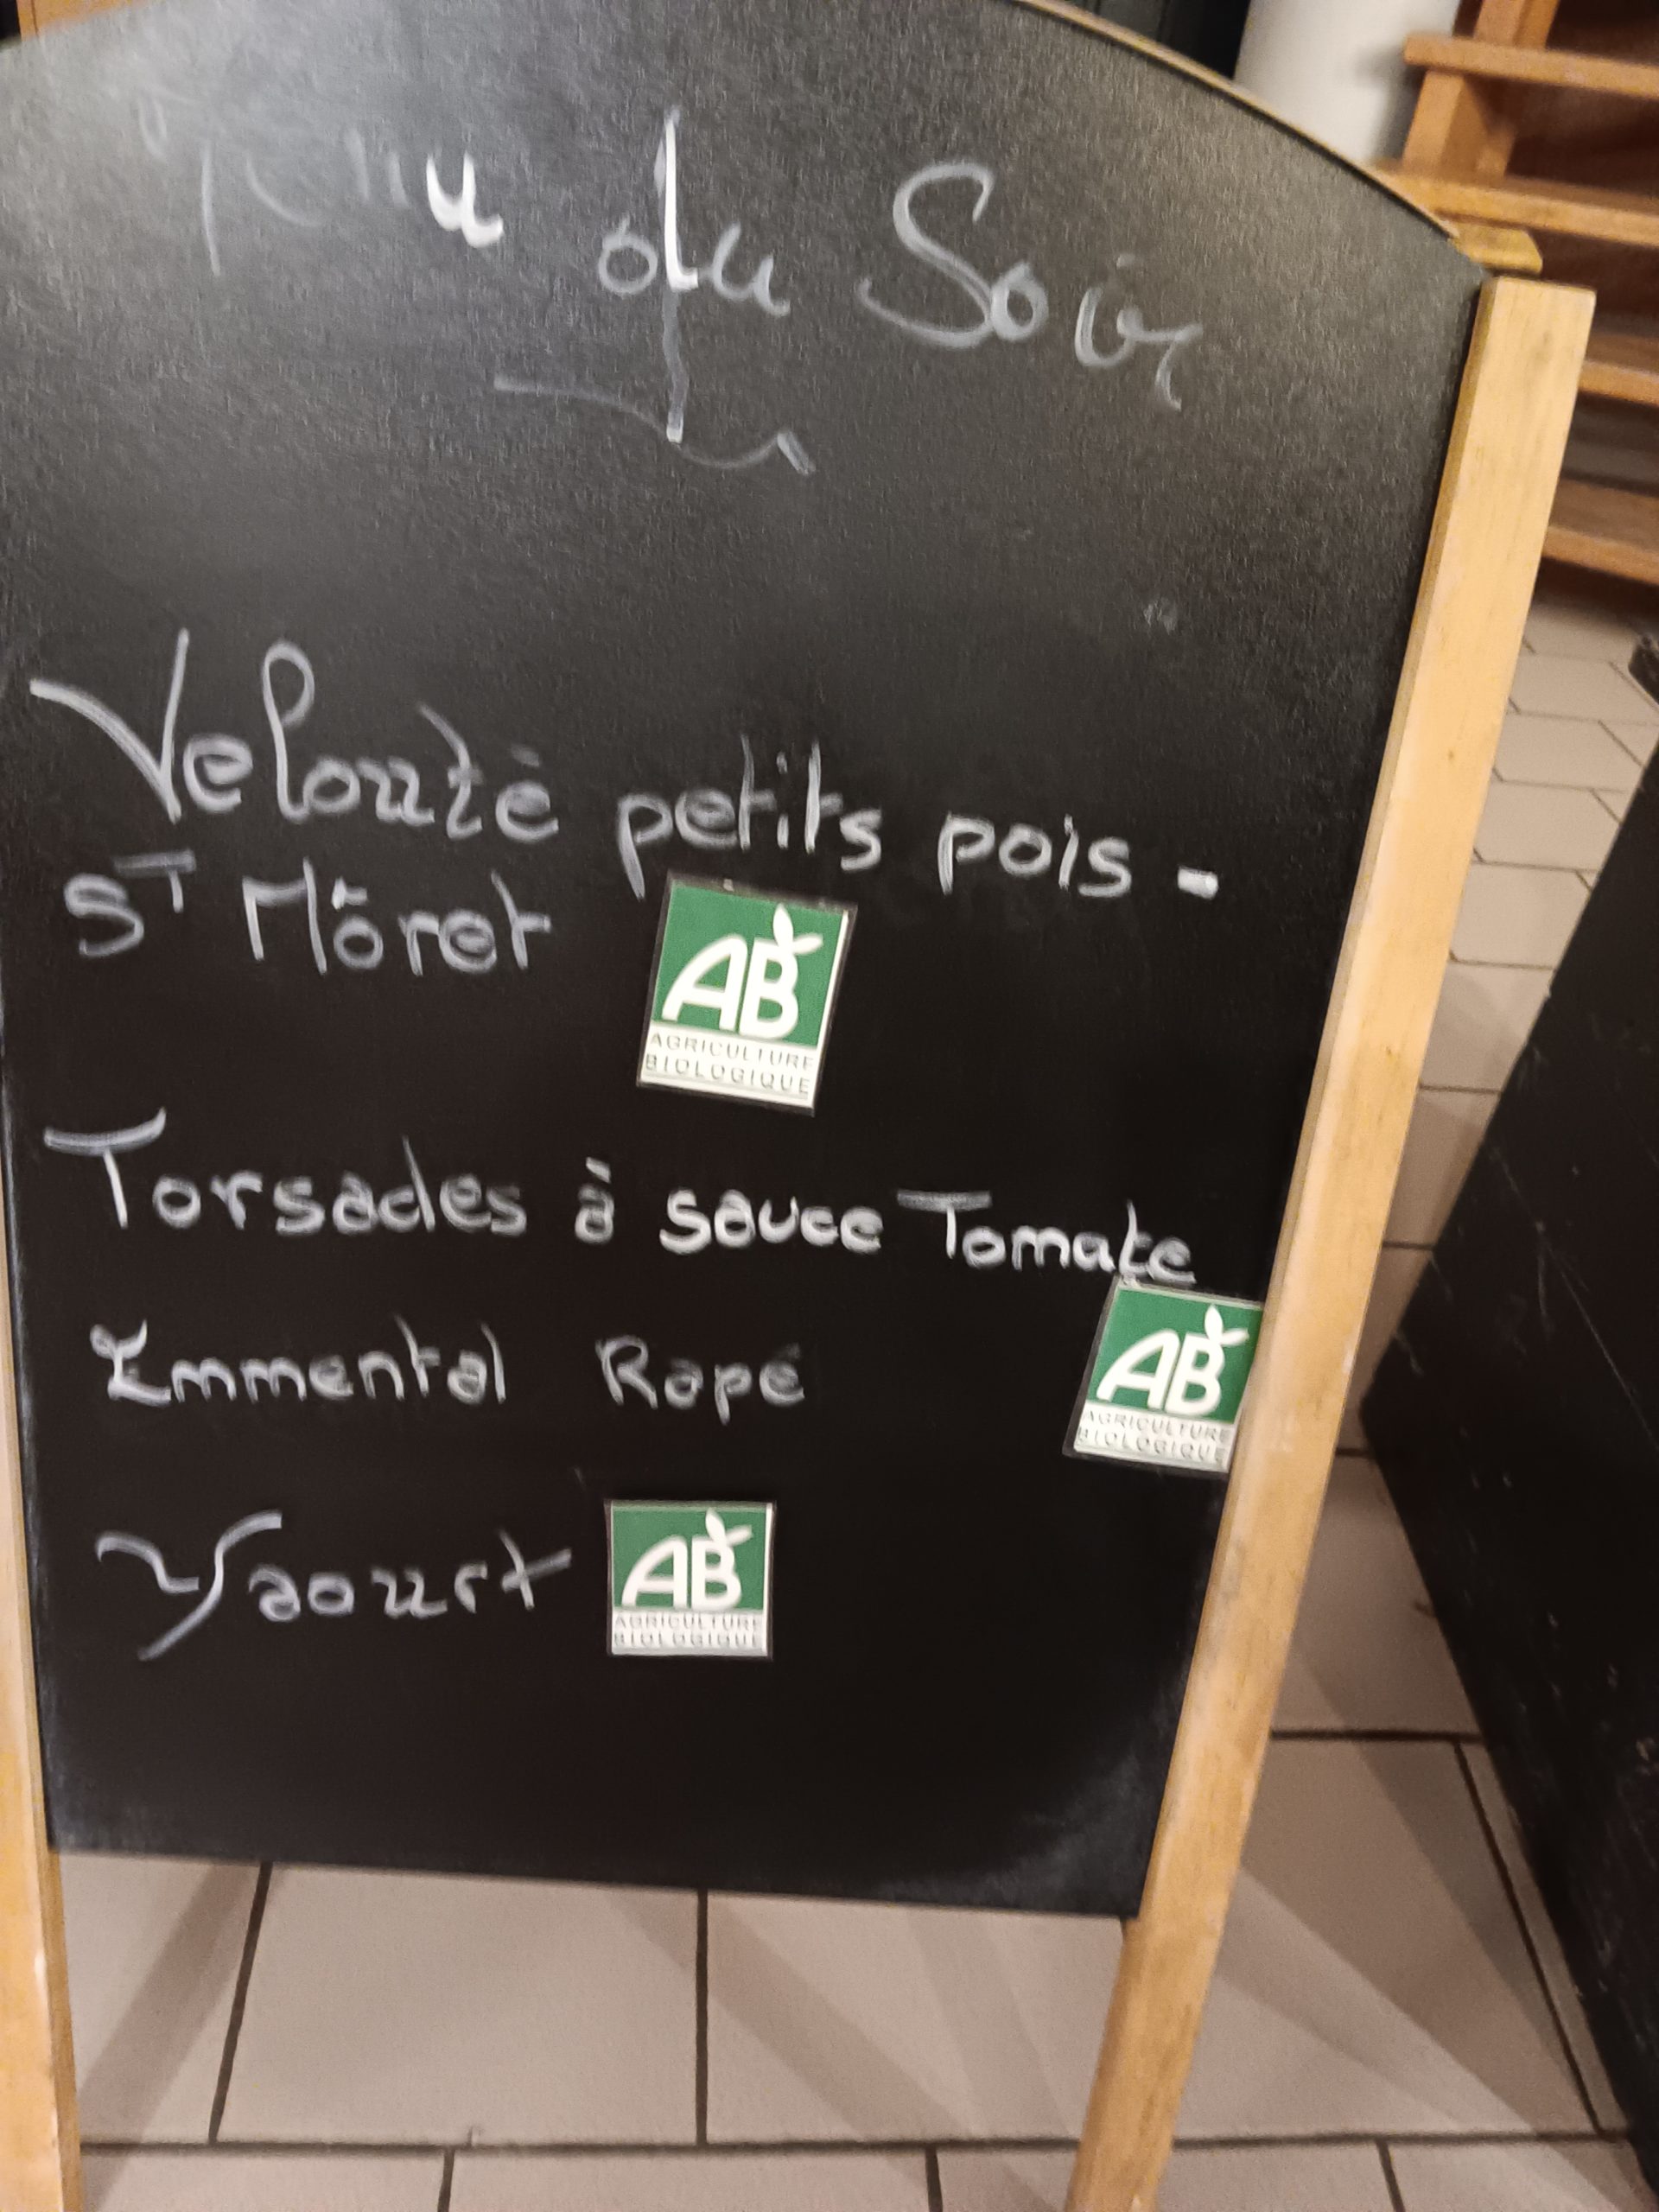 Menu du Soir
Velouté petits pois -
ST Môret
AB
AGRICULTURE
BIOLOGIQUE
Torsades à sauce Tomate
AB
AGRICULTURE
BIOLOGIQUE
Emmental Rapé
Yaourt
AB
AGRICULTURE
BIOLOGIQUE